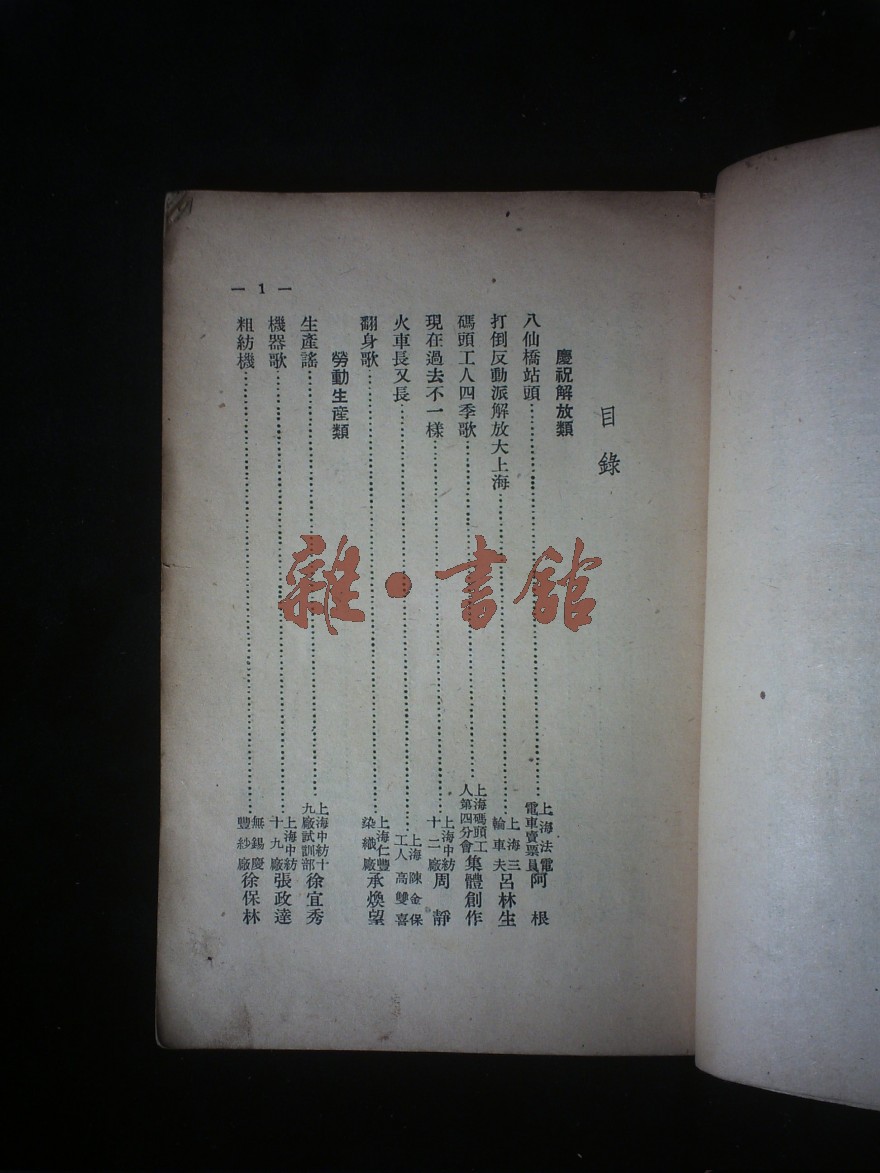 目錄
慶祝解放類
八仙橋站頭……上海法電電車賣票員 阿根
打倒反動派解放大上海……上海三輪車夫 呂林生
碼頭工人四季歌……上海碼頭工人第四分會 集體創作
現在過去不一樣……上海中紡十二廠 周靜
火車長又長……上海工人 陳金保 高雙喜
翻身歌……上海仁豐染織廠 承煥望
勞動生産類
生產謠……上海中紡十九廠試訓部 徐宜秀
機器歌……上海中紡十九廠 張政達
粗紡機……無錫慶豐紗廠 徐保林
— 1 —
雜·書館